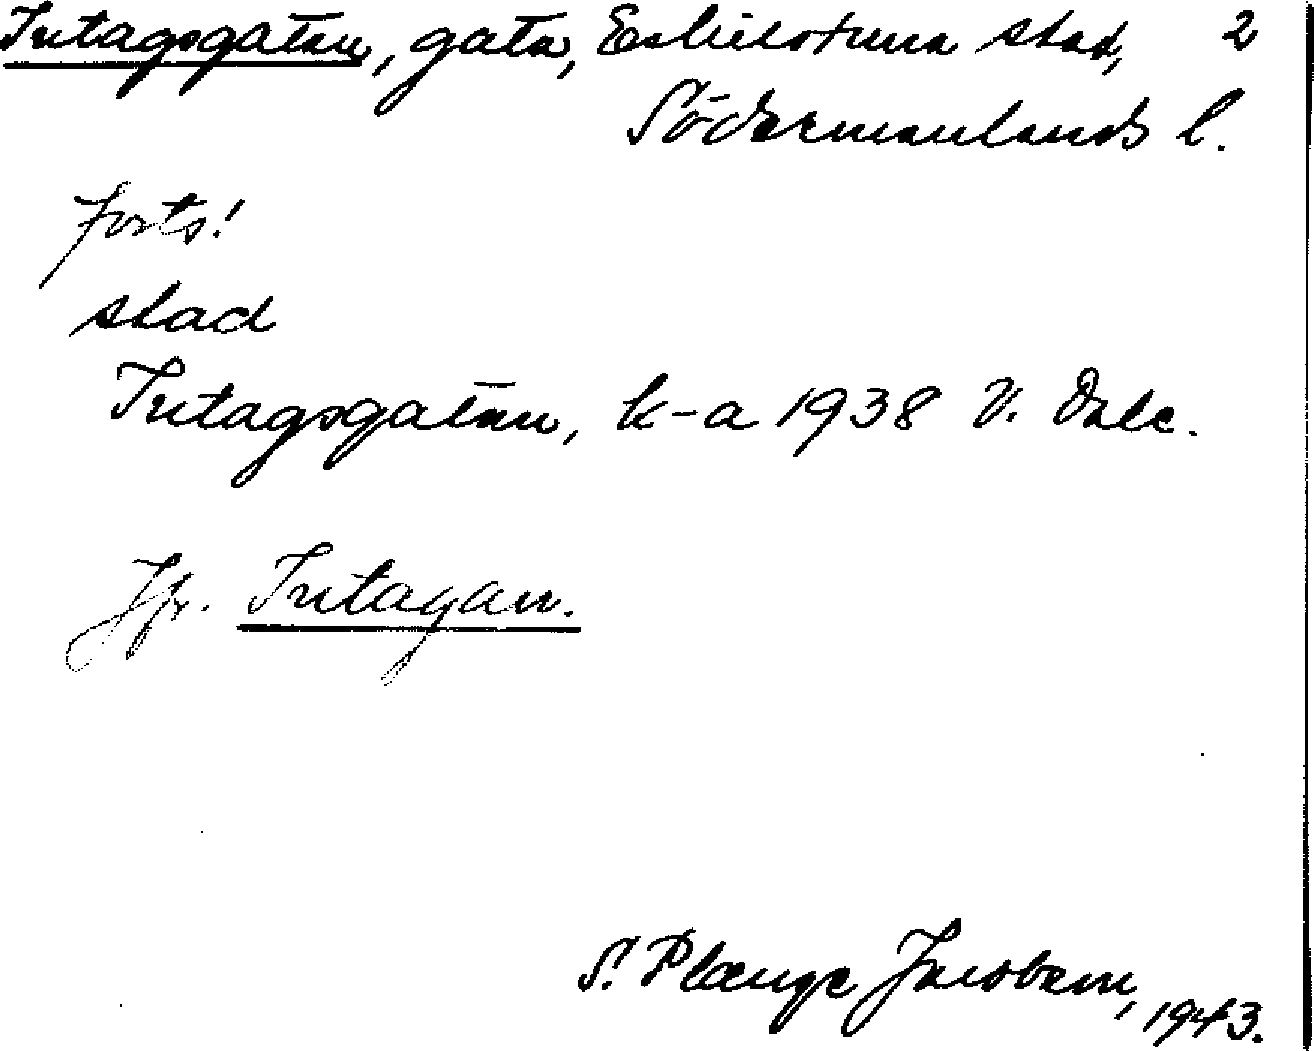 Intagsgatan, gata, Eskilstuna stad, 2
Södermanlands l.
forts!
stad
Intagsgatan, k-a 1938 V. Dale.
Jfr. Intagan.
S. Plænge Jacobsen, 1943.